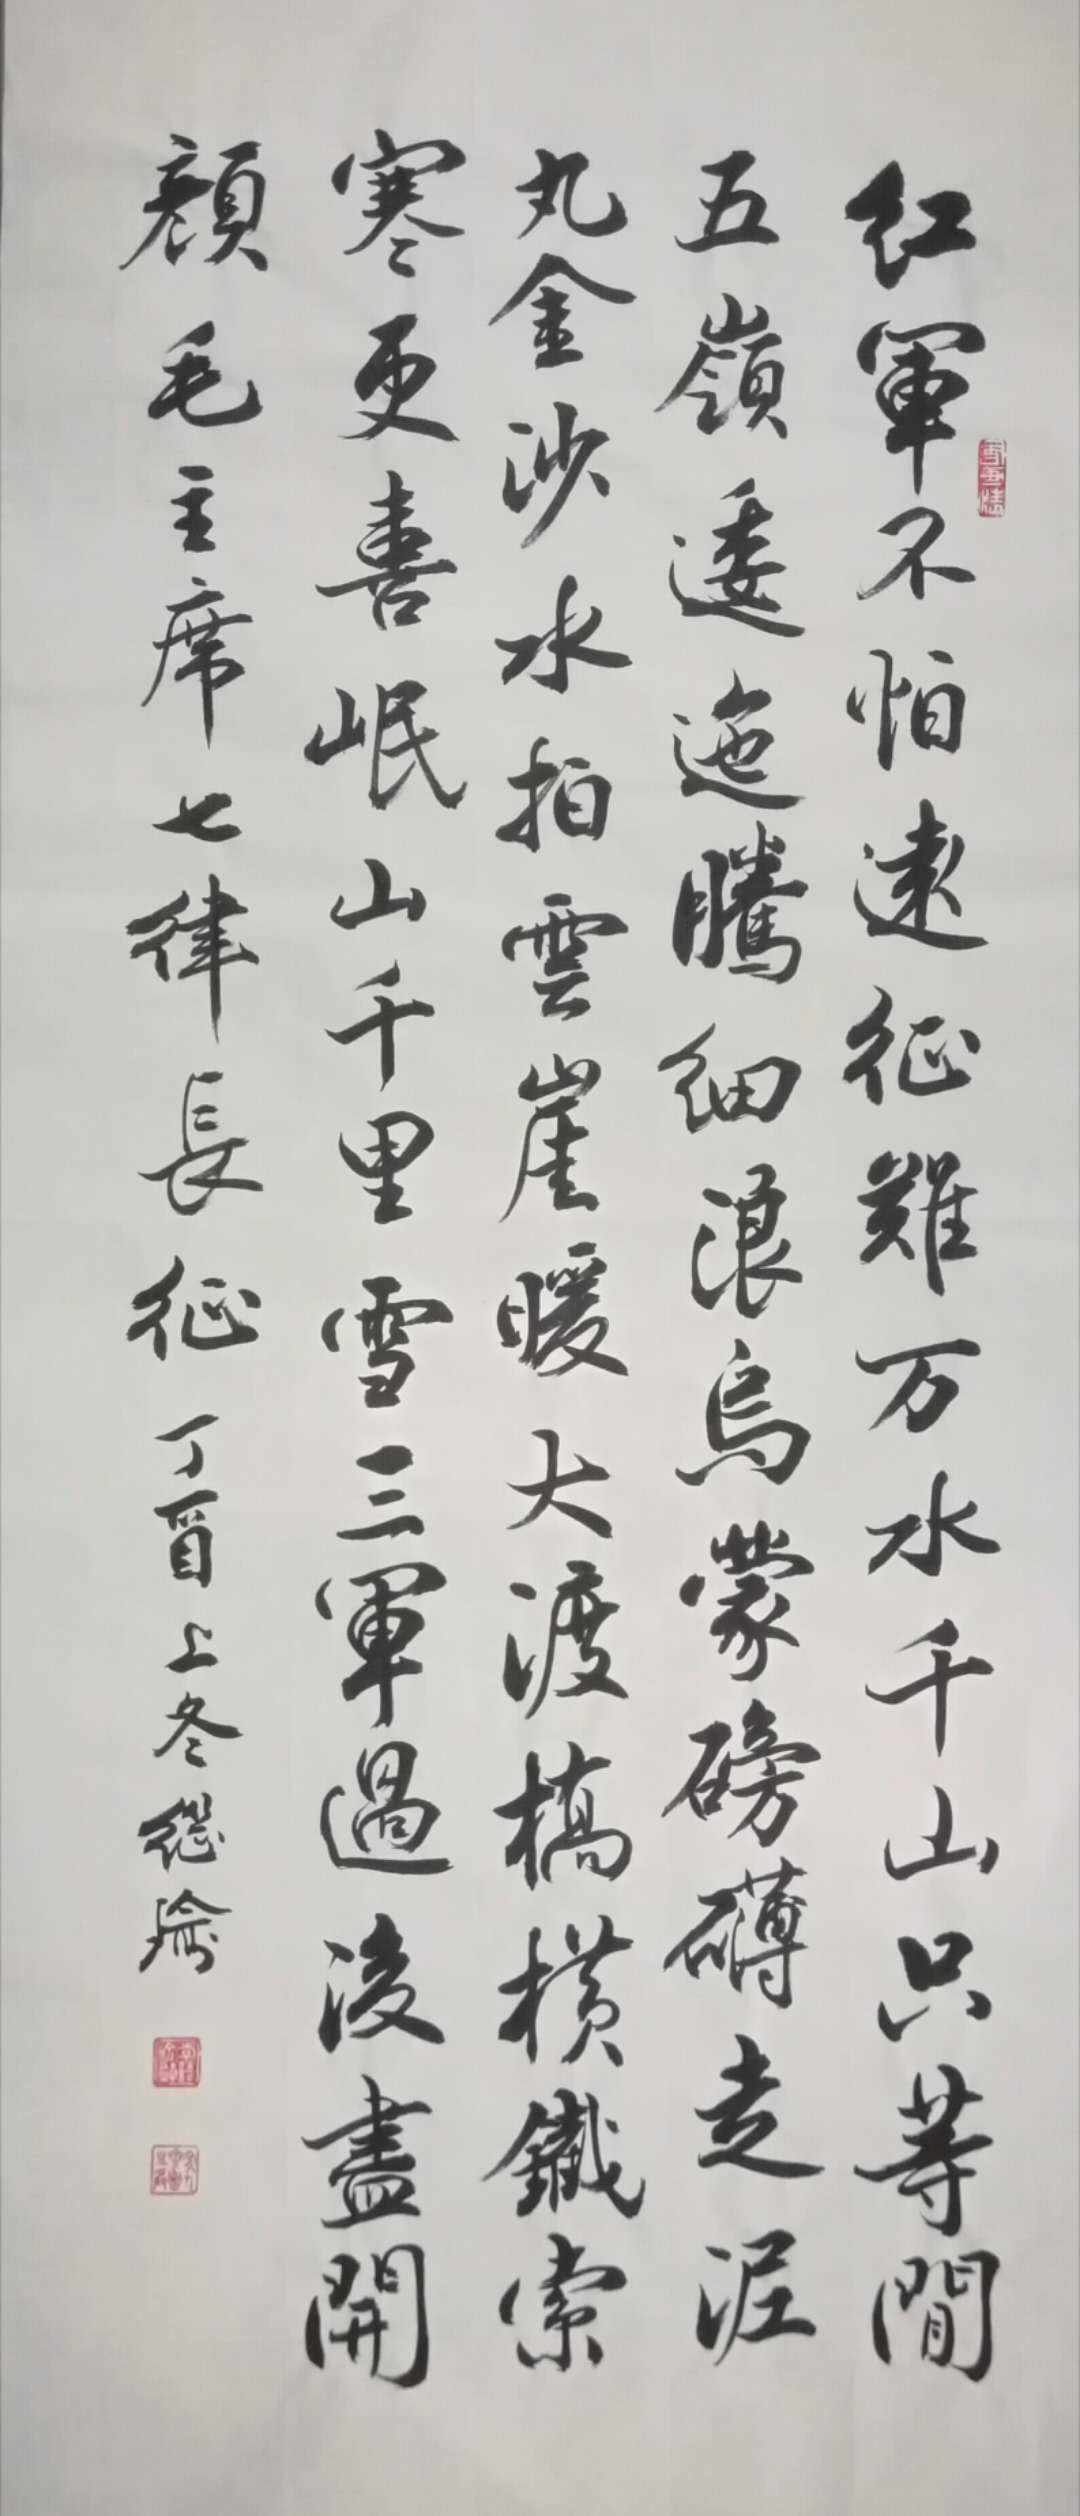 紅軍不怕遠征難万水千山只等閒
五嶺逶迤騰細浪烏蒙磅礴走泥
丸金沙水拍雲崖暖大渡橋橫鐵索
寒更喜岷山千里雪三軍過後盡開
顏毛主席七律長征丁酉上冬從瑜